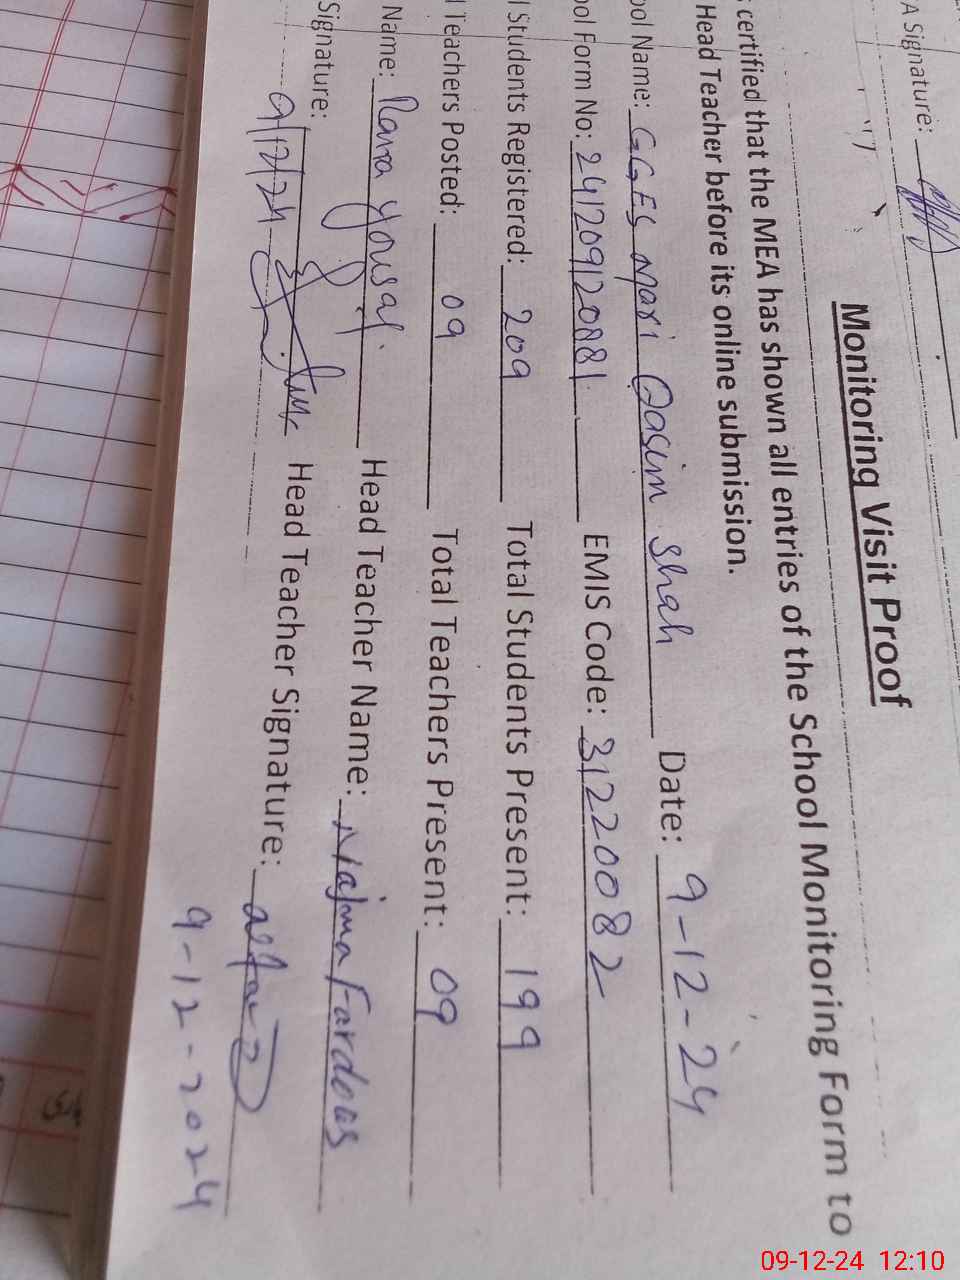 A Signature:
Monitoring Visit Proof
certified that the MEA has shown all entries of the School Monitoring Form to
Head Teacher before its online submission.
ool Name: GGES Mari Qasim Shah Date: 9-12-24
ool Form No: 241209120881 EMIS Code: 31220082
l Students Registered: 209 Total Students Present: 199
l Teachers Posted: 09 Total Teachers Present: 09
Name: Rana Yousaf Head Teacher Name: Najma Fardous
Signature: Head Teacher Signature:
9/12/24
9-12-2024
09-12-24 12:10